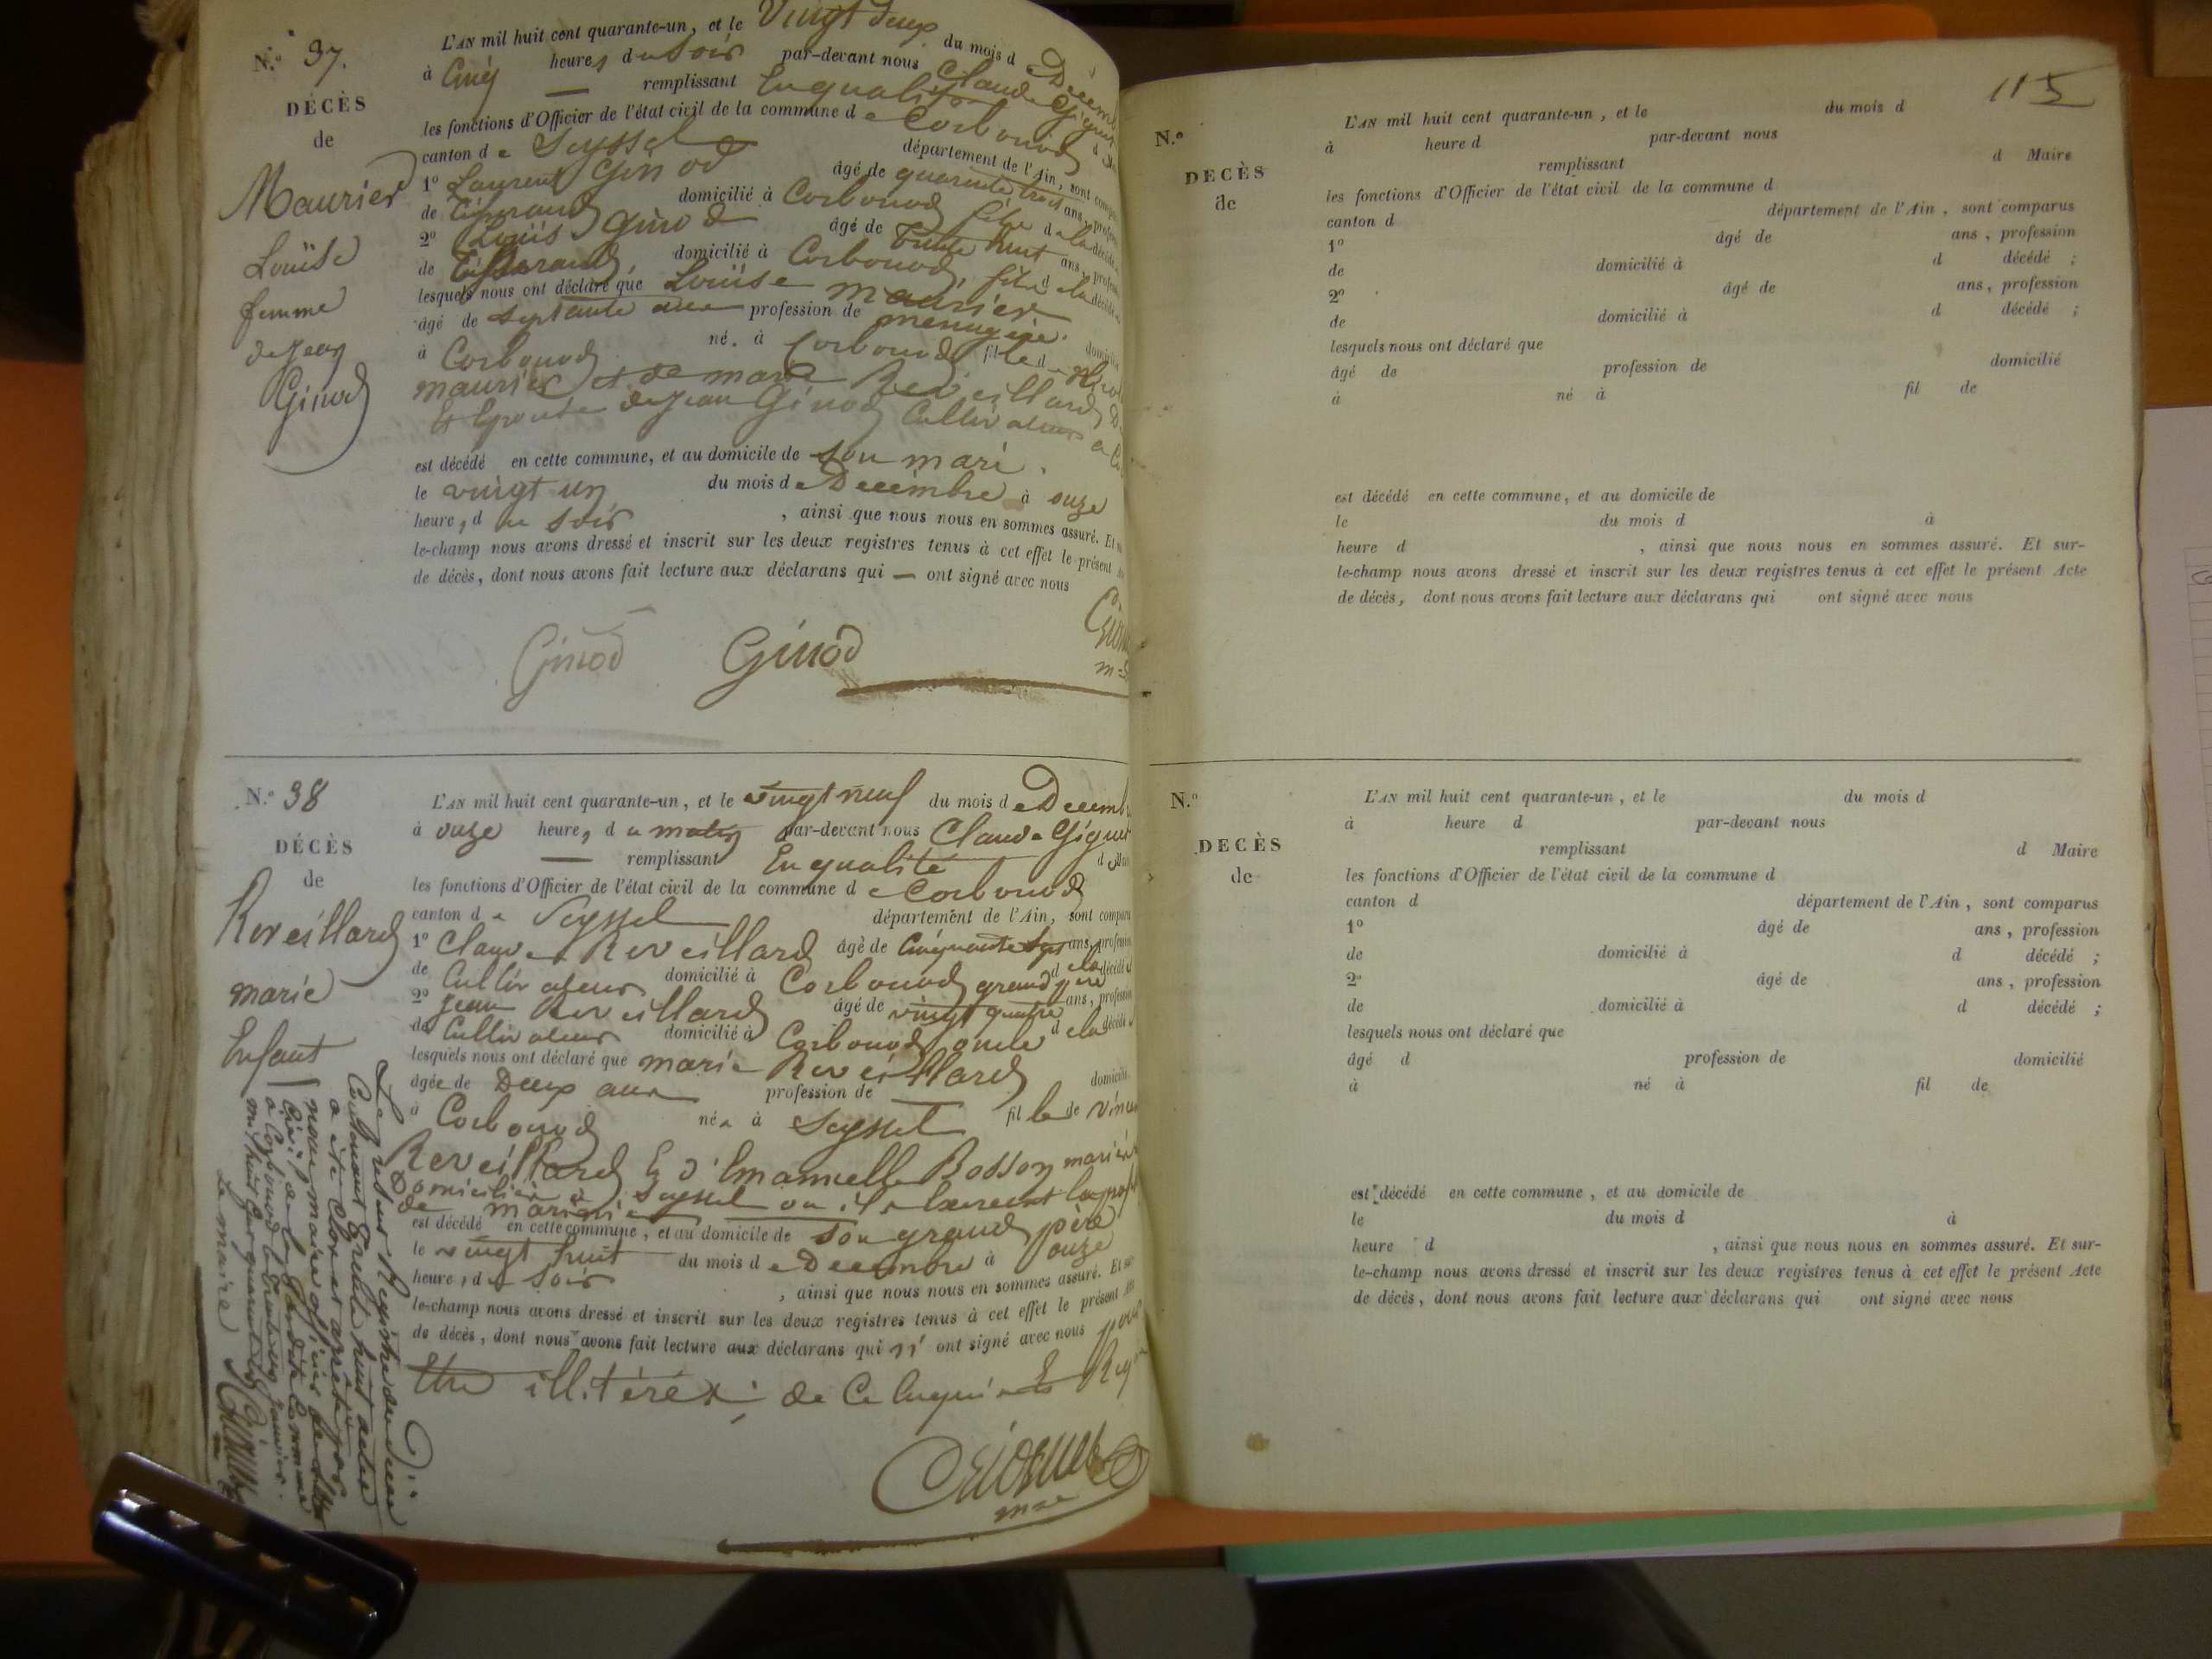 N.º 37.
DÉCÈS
de
Maurier
Louïse
femme
de Jean
Ginod
L'AN mil huit cent quarante-un, et le Vingt deux du mois de Decemb
à Cinq heures du Soir par-devant nous Claude Giguet
— remplissant En qualité d
les fonctions d'Officier de l'état civil de la commune de Corbonod
canton de Seyssel département de l'Ain, sont compa
1º Laurent Ginod âgé de quarante trois ans, profes
de Tisserand domicilié à Corbonod fils de la décédé
2º Louis Ginod âgé de trente huit ans, profess
de Tisserand domicilié à Corbonod fils de la décédé
lesquels nous ont déclaré que Louïse maurier
âgé de septante ans profession de menagère. domicili
à Corbonod né. à Corbonod fille d
maurier et de marie Reveillard
Et Epouse de Jean Ginod Cultivateur
est décédé en cette commune, et au domicile de son mari.
le vingt un du mois de Decembre à onze
heures, du soir, ainsi que nous nous en sommes assuré. Et
le-champ nous avons dressé et inscrit sur les deux registres tenus à cet effet le présent
de décès, dont nous avons fait lecture aux déclarans qui — ont signé avec nous
Ginod Ginod
N.º 38
DÉCÈS
de
Reveillard
marie
Enfant
L'AN mil huit cent quarante-un, et le vingt neuf du mois de Decemb
à onze heures, du matin par-devant nous Claude Giguet
— remplissant En qualité d
les fonctions d'Officier de l'état civil de la commune de Corbonod
canton de Seyssel département de l'Ain, sont compa
1º Claude Reveillard âgé de Cinquante ans, profession
de Cultivateur domicilié à Corbonod grand père de la décédé
2º Jean Reveillard âgé de vingt quatre ans, profession
de Cultivateur domicilié à Corbonod oncle de la décédé
lesquels nous ont déclaré que marie Reveillard
âgée de Deux ans profession de — domicili
à Corbonod née à Seyssel fille de
Reveillard Et d'Emanuelle Bosson mariés
Domiciliés à Seyssel ou ils Exercent la prof
de
est décédé en cette commune, et au domicile de son grand père
le vingt huit du mois de Decembre à onze
heures, du soir, ainsi que nous nous en sommes assuré. Et sur
le-champ nous avons dressé et inscrit sur les deux registres tenus à cet effet le présent
de décès, dont nous avons fait lecture aux déclarans qui n' ont signé avec nous pour
Etre illitérés; de Ce Enquis Et Req
Giguet
mre
Le présent Registre des Deces
Contenant trente huit actes
a été Clos et arrêté par
nous maire officier de l'état
Civil de la susdite Commune
à Corbonod le trente un
mil huit Cent quarante
Le maire Giguet
115
N.º
DECÈS
de
L'AN mil huit cent quarante-un, et le du mois d
à heure d par-devant nous
remplissant d Maire
les fonctions d'Officier de l'état civil de la commune d
canton d département de l'Ain, sont comparus
1º âgé de ans, profession
de domicilié à d décédé ;
2º âgé de ans, profession
de domicilié à d décédé ;
lesquels nous ont déclaré que
âgé de profession de domicilié
à né à fil de
est décédé en cette commune, et au domicile de
le du mois d à
heure d , ainsi que nous nous en sommes assuré. Et sur-
le-champ nous avons dressé et inscrit sur les deux registres tenus à cet effet le présent Acte
de décès, dont nous avons fait lecture aux déclarans qui ont signé avec nous
N.º
DECÈS
de
L'AN mil huit cent quarante-un, et le du mois d
à heure d par-devant nous
remplissant d Maire
les fonctions d'Officier de l'état civil de la commune d
canton d département de l'Ain, sont comparus
1º âgé de ans, profession
de domicilié à d décédé ;
2º âgé de ans, profession
de domicilié à d décédé ;
lesquels nous ont déclaré que
âgé d profession de domicilié
à né à fil de
est décédé en cette commune, et au domicile de
le du mois d à
heure d , ainsi que nous nous en sommes assuré. Et sur-
le-champ nous avons dressé et inscrit sur les deux registres tenus à cet effet le présent Acte
de décès, dont nous avons fait lecture aux déclarans qui ont signé avec nous